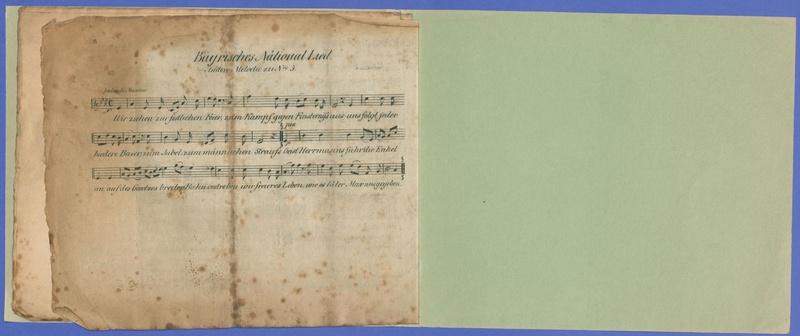 Bayrisches National Lied
Andere Melodie zu No. 3.
Wir ziehen zur festlichen Feier, zum Kampf gegen Finsterniß aus uns folgt jeder
biedere Baier zum Jubel zum männlichen Strauß Geist Herrmanns führ die Enkel
an auf des Gesetzes breiter Bahn erstreben wir freieres Leben, wie es Vater Max uns gegeben.